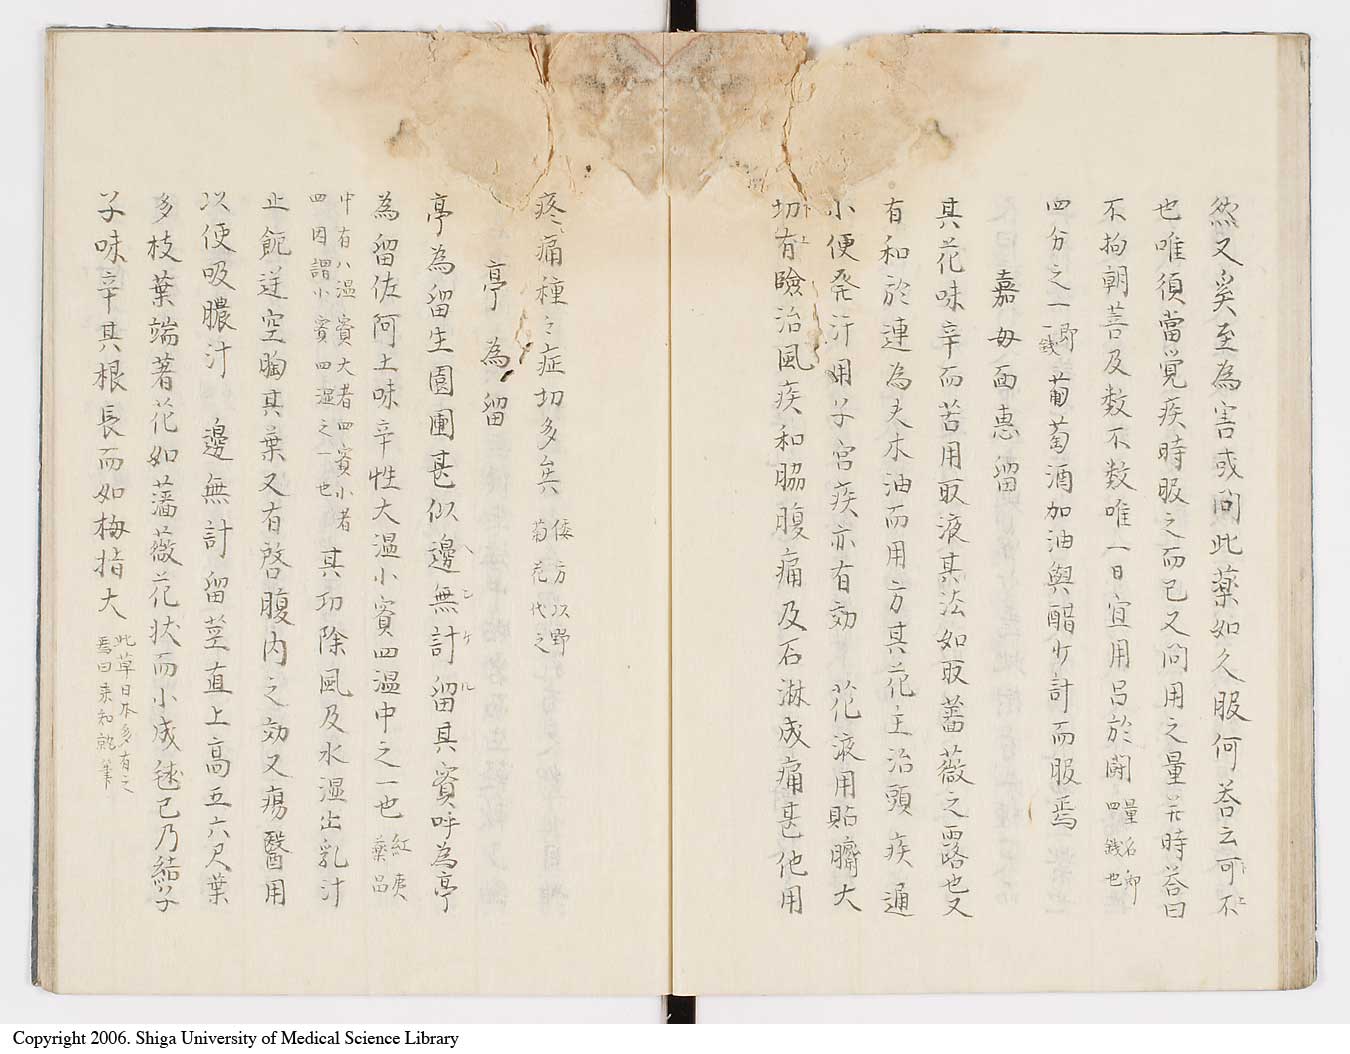 然又奚至為害或問此薬如久服何荅云可不
也唯須當覚疾時服之而已又問用之量其時荅曰
不拘朝暮及数不数唯一日宜用吕於闘量名即四錢也
四分之一即一錢葡萄酒加油與醋少計而服焉
嘉毋面恵留
其花味辛而苦用取液其法如取薔薇之露也又
有和於連為夫木油而用方其花主治頭疾通
小便発汗用子宮疾亦有効花液用貼臍大
切有險治風疾和脇腹痛及石淋成痛甚他用
疼痛種々症切多矣倭方以野菊花代之
亭為留
亭為留生園圃甚似邊無計留其實呼為亭
ヘンケル
為留佐阿土味辛性大温小實四温中之一也紅夷薬品
中有八温實大者四實小者四因謂小實四温之一也其功除風及水湿出乳汁
止飽逆空胸其葉又有啓腹内之効又瘍醫用
以便吸膿汁邊無計留莖直上高五六尺葉
多枝葉端著花如薔薇花状而小成毬已乃結子
子味辛其根長而如梅指大此草日本多有之焉曰未知孰筆
Copyright 2006. Shiga University of Medical Science Library